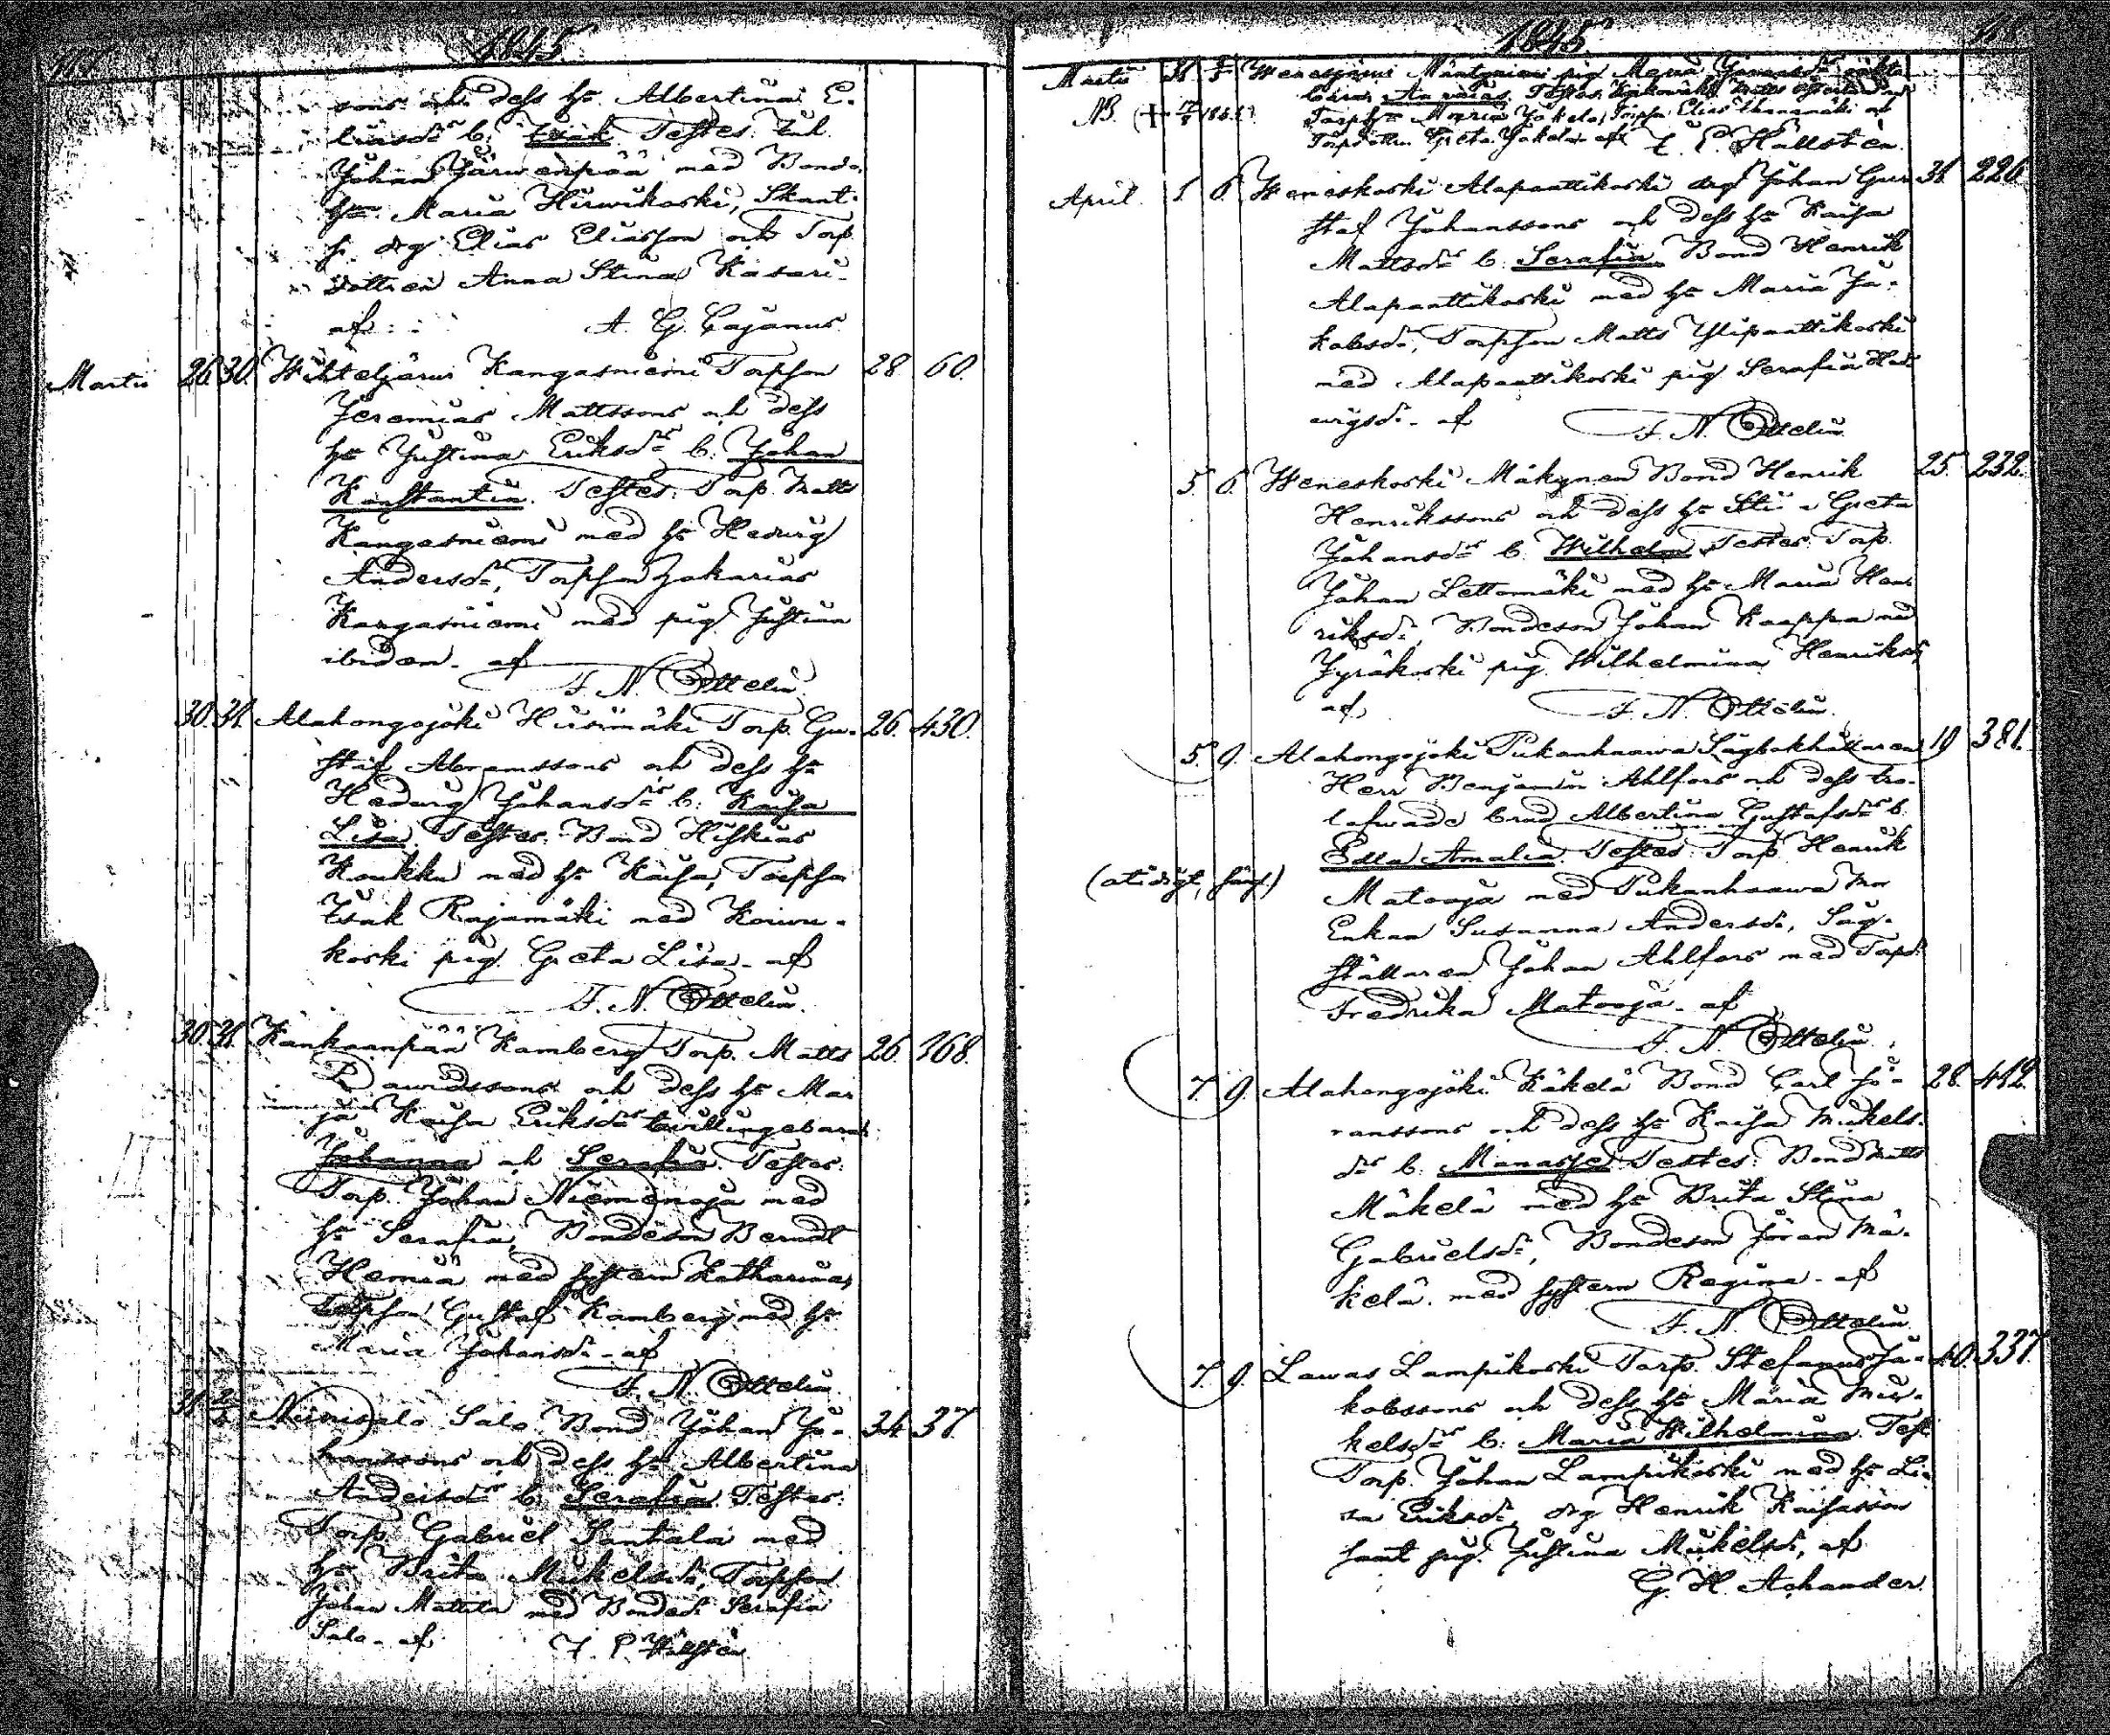 1845.
sons och dess h. Albertina E-
liæsdrs b. Isak Testes: Inh.
Johan Järwenpää med Bond.
h. Maria Hirwikoski, Skant.
s. drg Elias Eliasson och Torp
dottren Anna Stina Kasari-
af A. G. Cajanus.
Martii 26. 30. Wihteljärwi Kangasniemi Torpson 28 60.
Jeremias Mattssons och dess
h. Justina Eriksdrs b. Johan
Konstantin. Testes: Torp. Matts
Kangasniemi med h. Hedwig
Andersd., Torpson Zakarias
Kangasniemi med pig. Justina
ibidem. af
F. N. Ottelin.
30. 31. Alahongojoki Torp. Gu- 26. 430.
staf Abramssons och dess h.
Hedwig Johansdrs b. Kaisa
Lisa. Testes: Bond Hiskias
Koukku med h. Kaisa, Torpson
Isak Rajamäki med Koiwu-
koski pig. Greta Lisa. af
F. N. Ottelin.
30. 31. Kankaanpää Kamberg Torp. Matts 26. 168.
Dawidssons och dess h. Mar
ja Kaisa Eriksdrs twillingebarn:
Johanna och Serafia. Testes:
Torp. Johan Niemenoja med
h. Serafia, Bondeson Berndt
Hemiä med systern Katharina,
Torpson Gustaf Kamberg med h.
Maria Johansd. af
F. N. Ottelin.
31. Niinisalo Salo Bond Johan Jo- 34. 37.
hanssons och dess h. Albertina
Andersdrs b. Serafia. Testes:
Torp. Gabriel Santala med
h. Brita Mickelsd., Torpson
Johan Mattila med Bonded. Serafia
Salo. af F. P. Hällstén
1845.
Martii 31. Wenesjärwi Mäntyniemi pig Maria
b. Testes:
NB. Torph. Maria Jokela, Torpson Elias
Torpdottern Greta Jokela. af F. P. Hällstén.
April. 1. 6. Weneskoski Alapanttikoski drg Johan Gu- 31. 226.
staf Johanssons och dess h. Kaisa
Mattsdrs b. Serafia. Bond Henrik
Alapanttikoski med h. Maria Ja-
kobsd., Torpson Matts Ylipanttikoski
med Alapanttikoski pig Serafia Hed-
wigsd. af
F. N. Ottelin
5. 6. Weneskoski Mäkynen Bond Henrik 25. 232.
Henrikssons och dess h. Greta
Johansdrs b. Wilhelm. Testes: Torp.
Johan Lettomäki med h. Maria Hen-
riksd., Bondeson Johan Kaappa med
Jyräkoski pig Wilhelmina Henriksd,
af F. N. Ottelin.
5. 9. Alahongojoki Pukanhaawa Sågbokhållaren 19 381.
Herr Benjamin Ahlfors och dess tro-
lofwade brud Albertina Gustafsdrs b.
Edla Amalia. Testes: Torp. Henrik
(otidigt, född)
Matooja med Pukanhaawa
Enkan Susanna Andersd., Såg-
ställaren Johan Ahlfors med Torpd.
Fredrika Matooja. af
F. N. Ottelin.
7. 9. Alahongojoki Käkelä Bond Carl Jö- 28. 412.
ranssons och dess h. Kaisa Mickels-
drs b. Manasse Testes: Bond Matts
Mäkelä med h. Brita Stina
Gabrielsd., Bondeson Jöran Mä-
kelä med systern Regina. af
F. N. Ottelin.
7. 9. Lawas Lampikoski Torp. Stefanus Ja- 40. 337.
kobssons och dess h. Maria Mic-
kelsdrs b. Maria Wilhelmina. Test:
Torp. Johan Lampikoski med h. Li-
sa Eriksd., drg Henrik Kaisasson
samt pig. Justina Mickelsd., af
G. H. Achander.